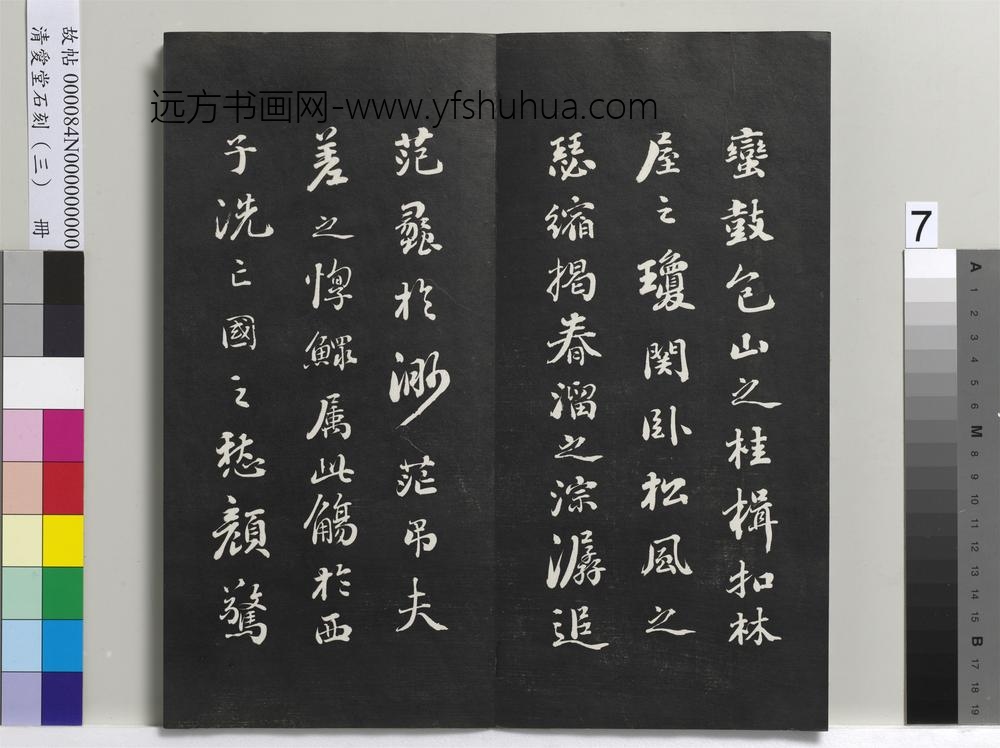 故帖 000084N000000000
清愛堂石刻(三) 冊
远方书画网-www.yfshuhua.com
蠻鼓包山之桂楫扣林
屋之瓊関卧松風之
瑟縮揭春溜之淙潺追
范蠡於渺茫吊夫
差之惸鰥属此觴於西
子洗亡國之愁顔驚
7
A 1 2 3 4 5 6 M 8 9 10 11 12 13 14 15 B 17 18 19